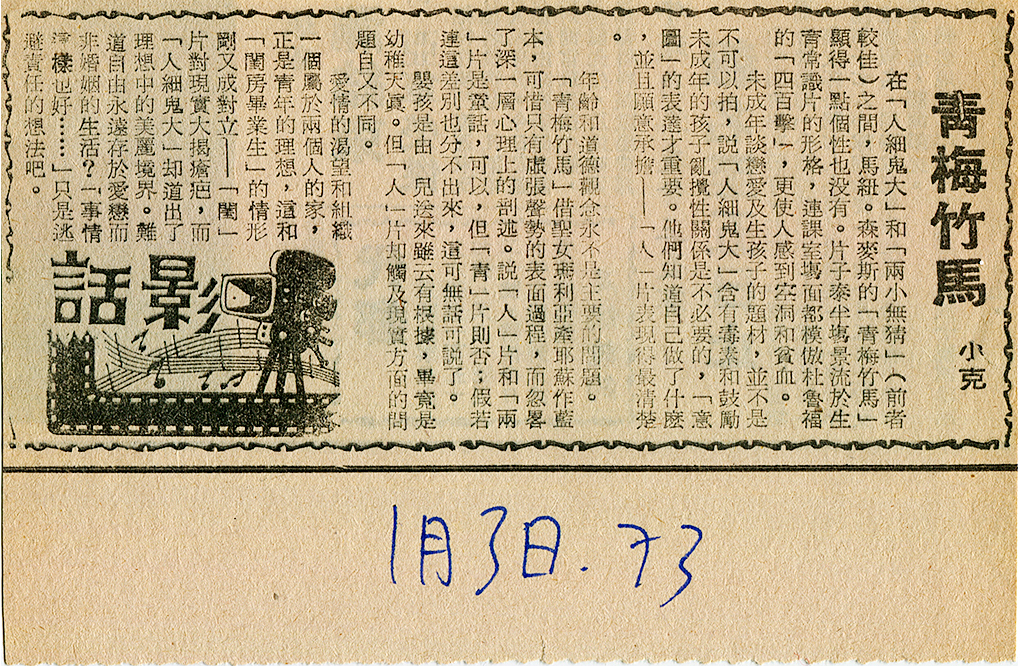 青梅竹馬
小克
在「人細鬼大」和「兩小無猜」（前者
較佳）之間，馬紐。森麥斯的「青梅竹馬」
顯得一點個性也没有。片子泰半塲景流於生
育常識片的形格，連課室塲面都模倣杜魯福
的「四百擊」，更使人感到空洞和貧血。
未成年談戀愛及生孩子的題材，並不是
不可以拍，説「人細鬼大」含有毒素和鼓勵
未成年的孩子亂攪性關係是不必要的，「意
圖」的表達才重要。他們知道自己做了什麽
，並且願意承擔——「人」片表現得最清楚
。
年齡和道德觀念永不是主要的問題。
「青梅竹馬」借聖女瑪利亞產耶蘇作藍
本，可惜只有虛張聲勢的表面過程，而忽畧
了深一層心理上的剖述。説「人」片和「兩
」片是童話，可以，但「青」片則否；假若
連這差別也分不出來，這可無話可説了。
嬰孩是由 兒送來雖云有根據，畢竟是
幼稚天眞。但「人」片却觸及現實方面的問
題自又不同。
愛情的渴望和組織
一個屬於兩個人的家，
正是青年的理想，這和
「閨房畢業生」的情形
剛又成對立——「閨」
片對現實大揭瘡疤，而
「人細鬼大」却道出了
理想中的美麗境界。難
道自由永遠存於愛戀而
非婚姻的生活？「事情
這樣也好……」只是逃
避責任的想法吧。
影話
1月3日. 73